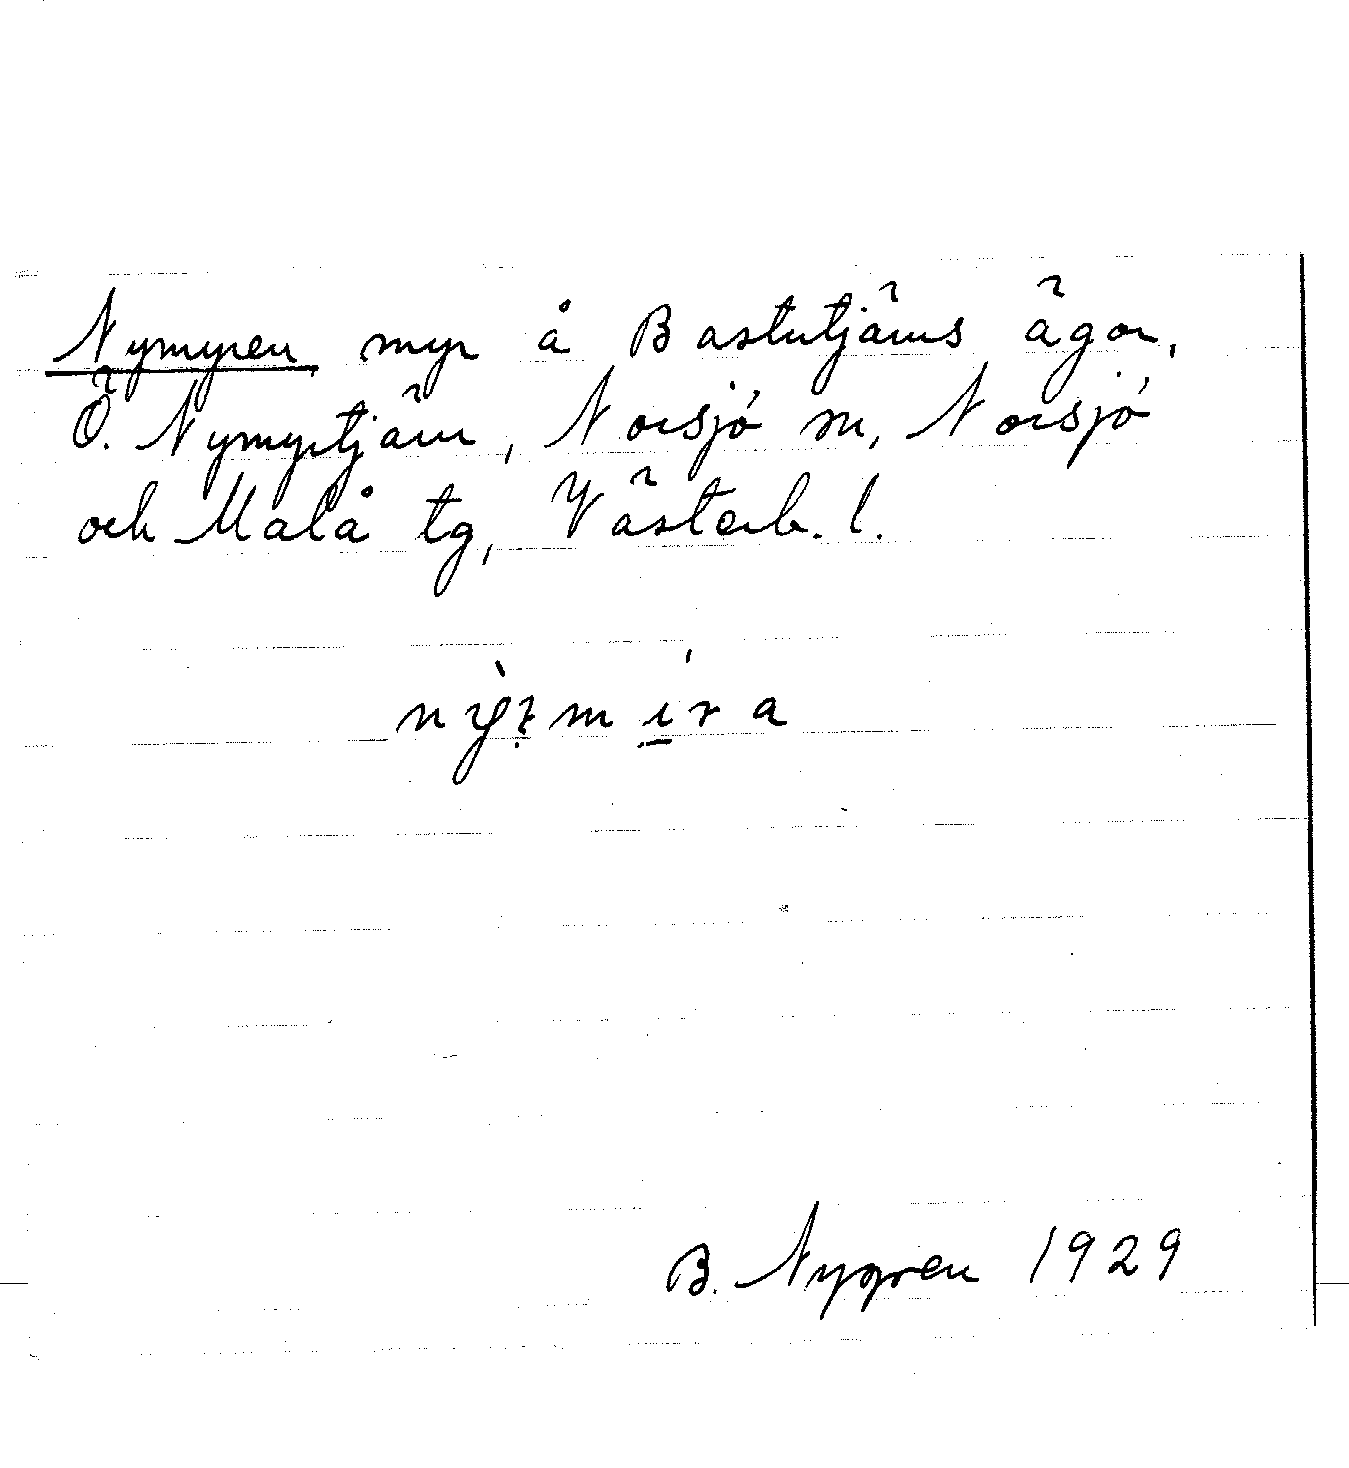 Nymyren myr å Bastutjärns ägor,
Ö. Nymyrtjärn, Norsjö sn, Norsjö
och Malå tg, Västerb. l.
B. Nygren 1929